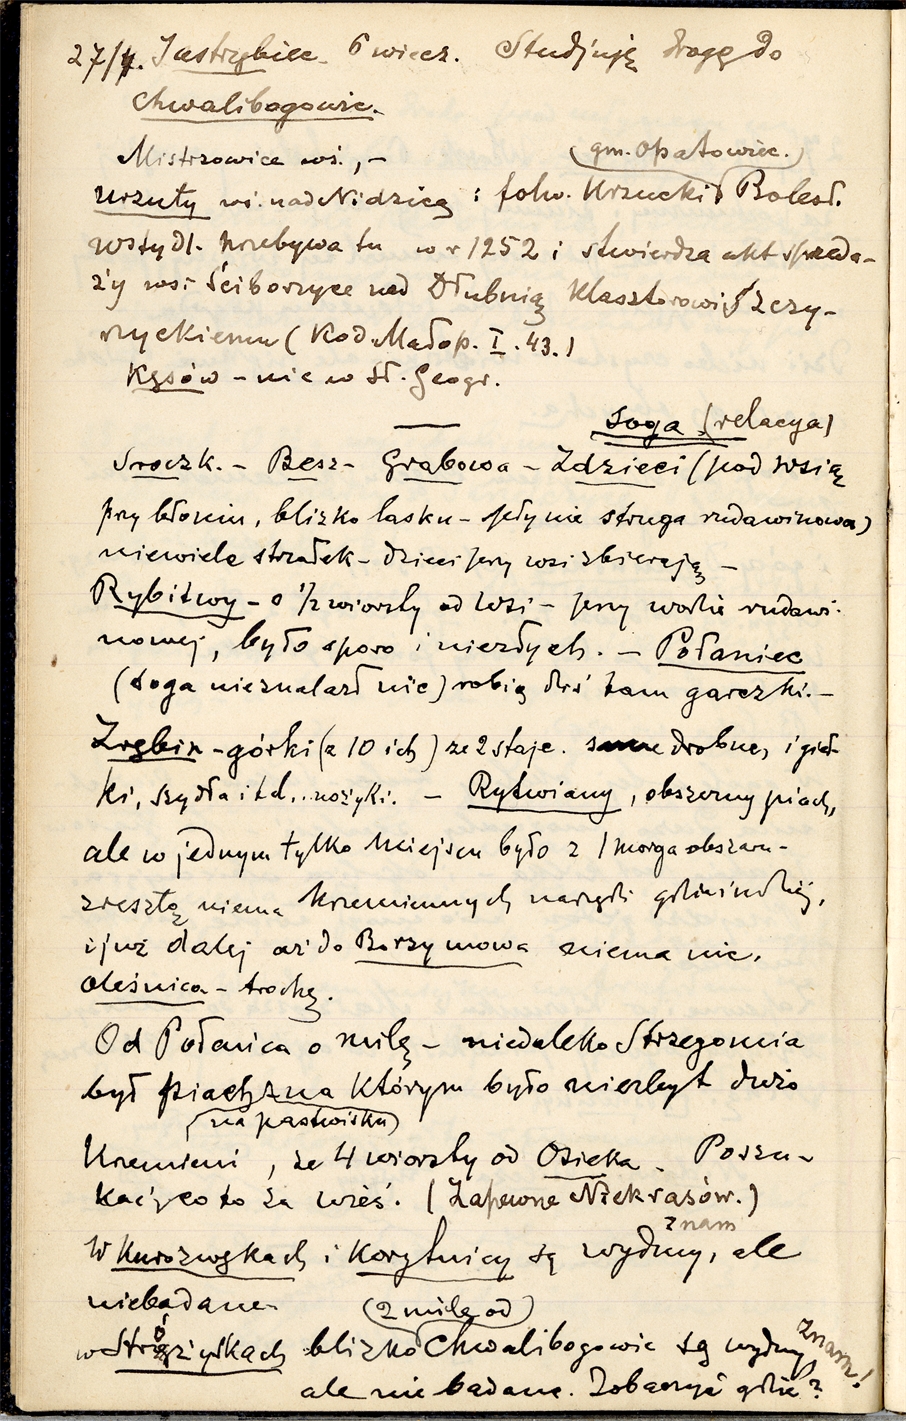 27/4. Jastrzębiec 6 wiecz. Studjuję drogę do
Chwalibogowic.
Mistrzowice wś., – (gm. Opatowiec.)
Urzuty wś. nad Nidzicą i folw. Krzucki Bolesł.
Wstydl. przebywa tu w r 1252 i stwierdza akt sprzeda-
ży wsi Ściborzyce nad Dłubnią Klasztorowi Szczy-
rzyckiemu (Kod. Małop. I. 43.)
Kęsów – nic w Sł. Geogr.
Soga (relacya)
Sroczk. – Besz – Grabowa – Zdzieci (pod wsią
przy błoniu, blizko lasku – płynie struga rudawinowa)
niewiele strzałek – dzieci przy wsi zbierają –
Rybitwy – o 1/2 wiorsty od wsi – przy wodzie rudawi-
nowej, było sporo i niezłych. – Połaniec
(Soga nieznalazł nic) robią dziś tam garczki. –
Zrębin – górki (z 10 ich) ze 2 staje. drobne, i pił-
ki, szydła i t.d... nożyki. – Rytwiany, obszerny piach,
ale w jednym tylko miejscu było z 1 morga obszaru –
zresztą niema krzemiennych narzędzi gdzieindziej,
i już dalej aż do Borzymowa niema nic.
Oleśnica – trochę.
Od Połańca o milę – niedaleko Strzegomia
był piach, na którym było niezbyt dużo
(na pastwisku)
Krzemieni, ze 4 wiorsty od Osieka. Poszu-
kać, co to za wieś. (Zapewne Niekrasów.)
znam
W Kurozwękach i Korytnicy są wydmy, ale
niebadane
(2 milę od)
w Stróżyskach blizko Chwalibogowic są wydmy znam!
ale nie badane. Zobaczyć gdzie?